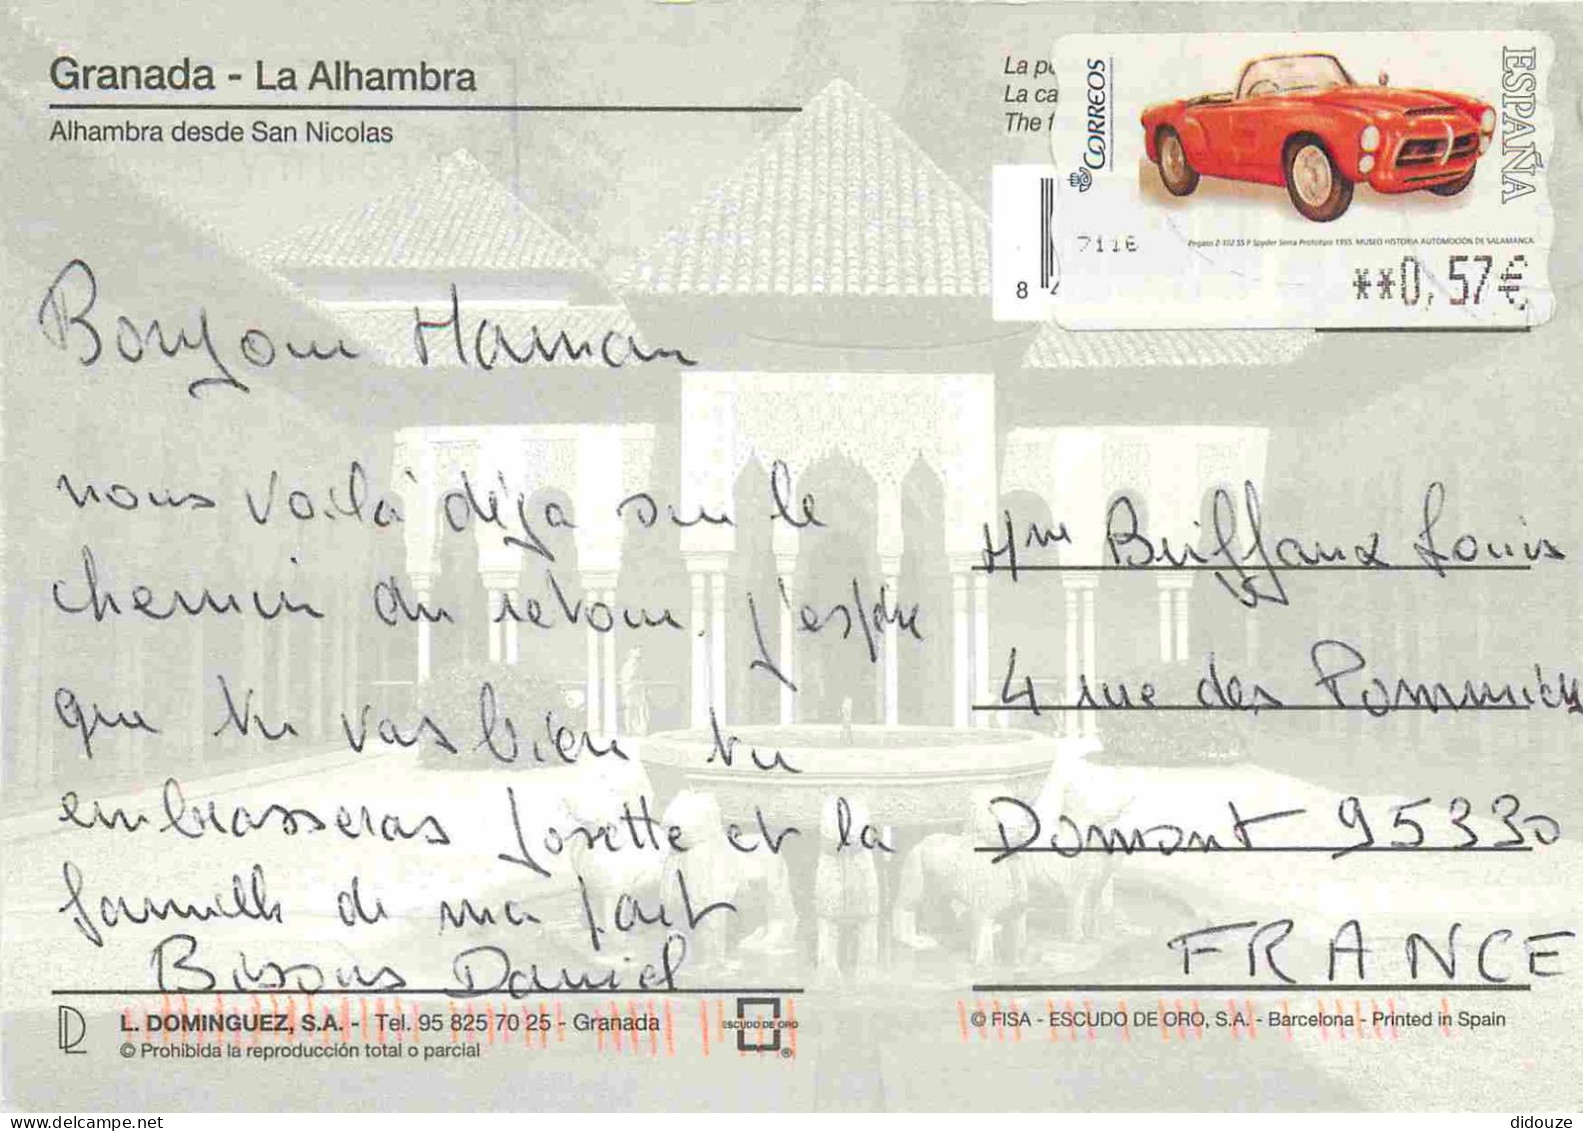 Granada - La Alhambra
Alhambra desde San Nicolas
La
La ca
The f
CORREOS
ESPAÑA
7116
Pegaso Z-102 SS P Spyder Serra Prototipo 1955. MUSEO HISTORIA AUTOMOCIÓN DE SALAMANCA
**0,57€
8
Bonjour Maman
nous voilà déja sur le
chemin du retour. j'espère
que tu vas bien tu
embrasseras Josette et la
famille de ma part
Bisous Daniel
Mme Briffaux Louis
4 rue des
Domont 95330
FRANCE
L. DOMINGUEZ, S.A. - Tel. 95 825 70 25 - Granada
© Prohibida la reproducción total o parcial
ESCUDO DE ORO
®
© FISA - ESCUDO DE ORO, S.A. - Barcelona - Printed in Spain
didouze